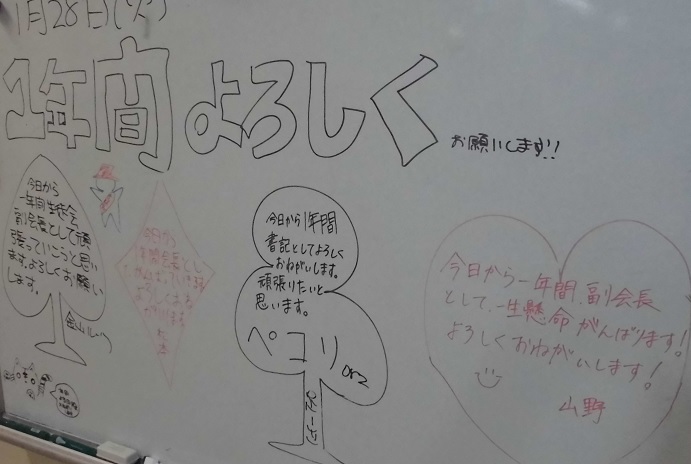 1月28日(火)
1年間よろしく
お願いします!!
今日から
一年間生徒会
副会長として頑
張っていこうと思い
ます。よろしくお願い
します。
今日から
年間会長とし
よろしくおね
がいします
今日から1年間
書記としてよろしく
おねがいします。
頑張りたいと
思います。
ペコリ
orz
今日から一年間、副会長
として、一生懸命がんばります!
よろしくおねがいします!
山野